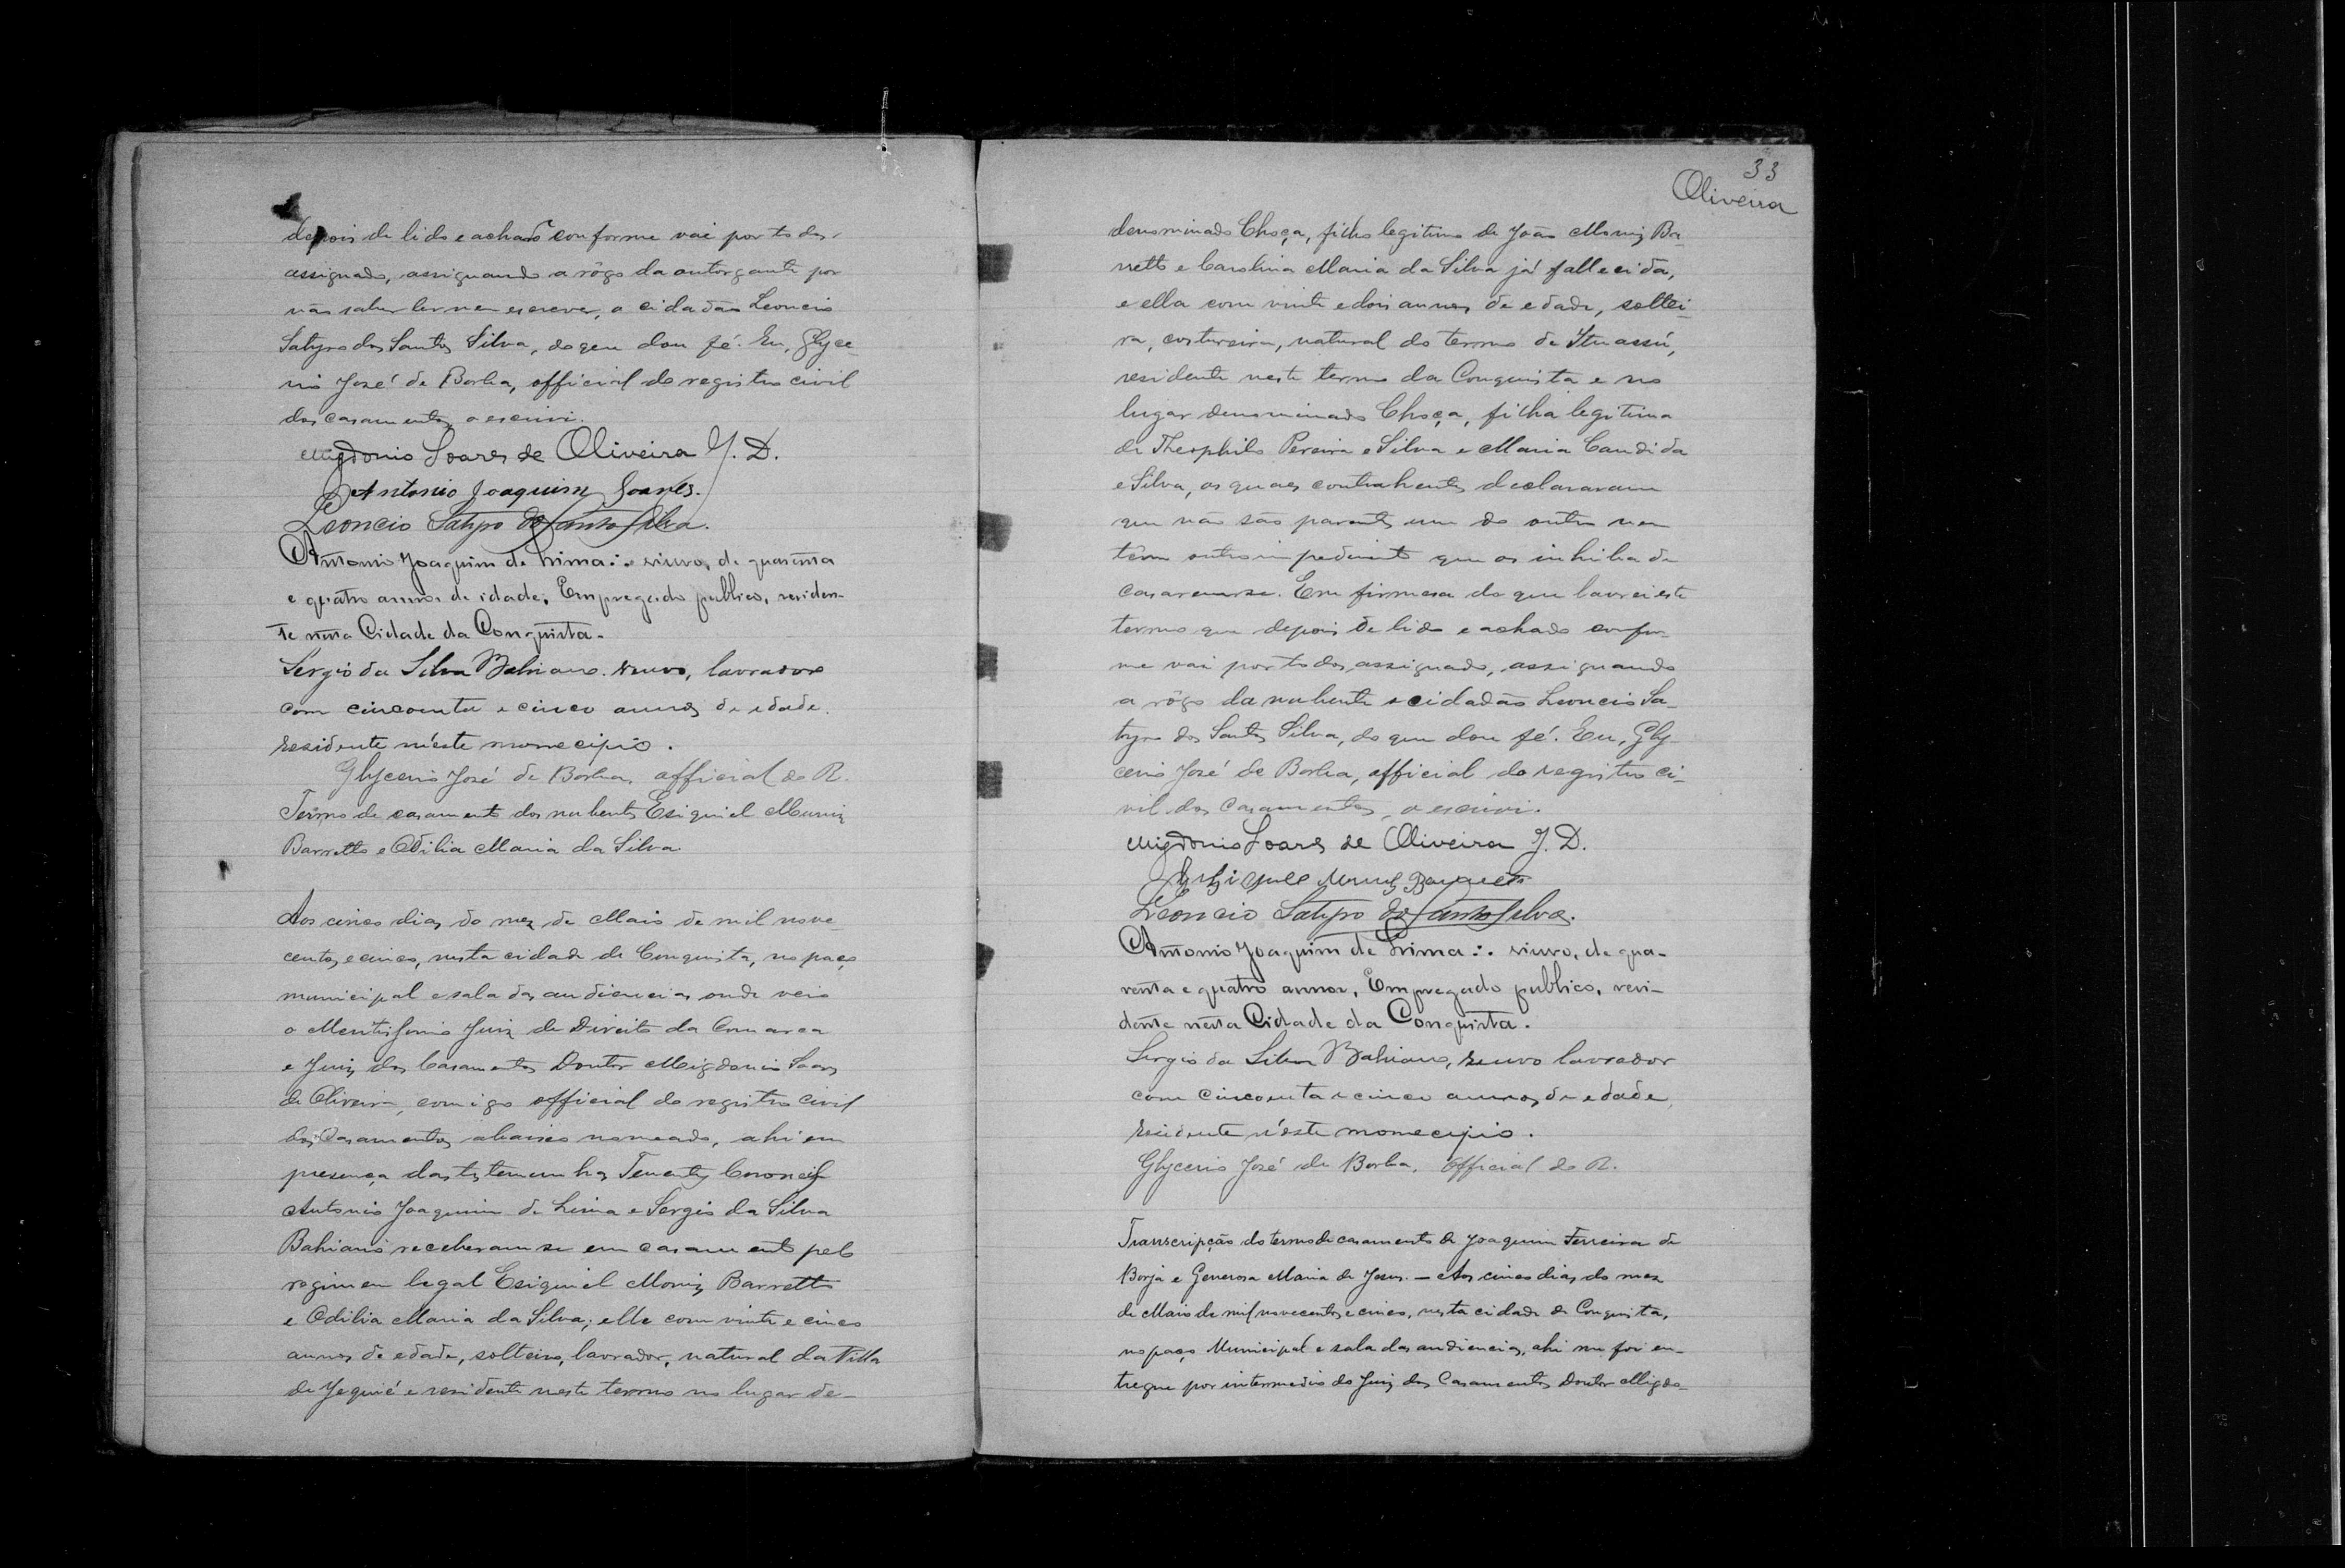 depois de lido e achado conforme vai por todos
assignado, assignando a rôgo da outorgante por
não saber ler nem escrever, o cidadão Leoncio
Satyro dos Santos Silva, do que dou fé. Eu, Glyce-
rio José de Borba, official do registro civil
dos casamentos, o escrivi.
Migdonio Soares de Oliveira J. D.
Antonio Joaquim Soares.
Leoncio Satyro dos Santos Silva.
Antonio Joaquim de Lima:. viuvo, de quarenta
e quatro annos de idade, Empregado publico, residen-
te nesta Cidade da Conquista.
Sergio da Silva Bahiano. viuvo, lavrador
com cincoenta e cinco annos de edade.
residente n'este monecipio.
Glycerio José de Borba, official do R.
Termo de casamento dos nubentes Esiquiel Muniz
Barretto e Odilia Maria da Silva.
Aos cinco dias do mez de Maio de mil nove-
centos e cinco, nesta cidade de Conquista, no paço
municipal e sala das audiencias onde veio
o Meritissimo Juiz de Direito da Comarca
e Juiz dos Casamentos Doutor Migdonio Soares
de Oliveira, comigo official do registro civil
dos Casamentos abaixo nomeado, ahi em
presença das testemunhas Tenentes Coroneis
Antonio Joaquim de Lima e Sergio da Silva
Bahiano receberam-se em casamento pelo
regimen legal Esiquiel Moniz Barretto
e Odilia Maria da Silva; elle com vinte e cinco
annos de edade, solteiro, lavrador, natural da Villa
de Jequié e residente neste termo no lugar de-
33
Oliveira
denominado Choça, filho legitimo de João Moniz Ba-
rretto e Carolina Maria da Silva já fallecida,
e ella com vinte e dois annos de edade, soltei-
ra, costureira, natural do termo de Ituassú,
residente neste termo da Conquista e no
lugar denominado Choça, filha legitima
de Theophilo Pereira e Silva e Maria Candida
e Silva, os quaes contrahentes declararam
que não são parentes um do outro nem
têm outro impedimento que os inhiba de
casarem-se. Em firmesa do que lavrei este
termo que depois de lido e achado confor-
me vai por todos assignado, assignando
a rôgo da nubente o cidadão Leoncio Sa-
tyro dos Santos Silva, do que dou fé. Eu, Gly-
cerio José de Borba, official do registro ci-
vil dos casamentos, o escrivi.
Migdonio Soares de Oliveira J. D.
Leoncio Satyro dos Santos Silva.
Antonio Joaquim de Lima:. viuvo, de qua-
renta e quatro annos, Empregado publico, resi-
dente nesta Cidade da Conquista.
Sergio da Silva Bahiano, viuvo lavrador
com cincoenta e cinco annos de edade,
residente n'este monecipio.
Glycerio José de Borba, official do R.
Transcripção do termo de casamento de Joaquim Ferreira de
Borja e Generosa Maria de Jesus. — Aos cinco dias do mez
de Maio de mil novecentos e cinco, nesta cidade de Conquista,
no paço Municipal e sala das audiencias, ahi me foi en-
tregue por intermedio do Juiz dos Casamentos Doutor Migdo-